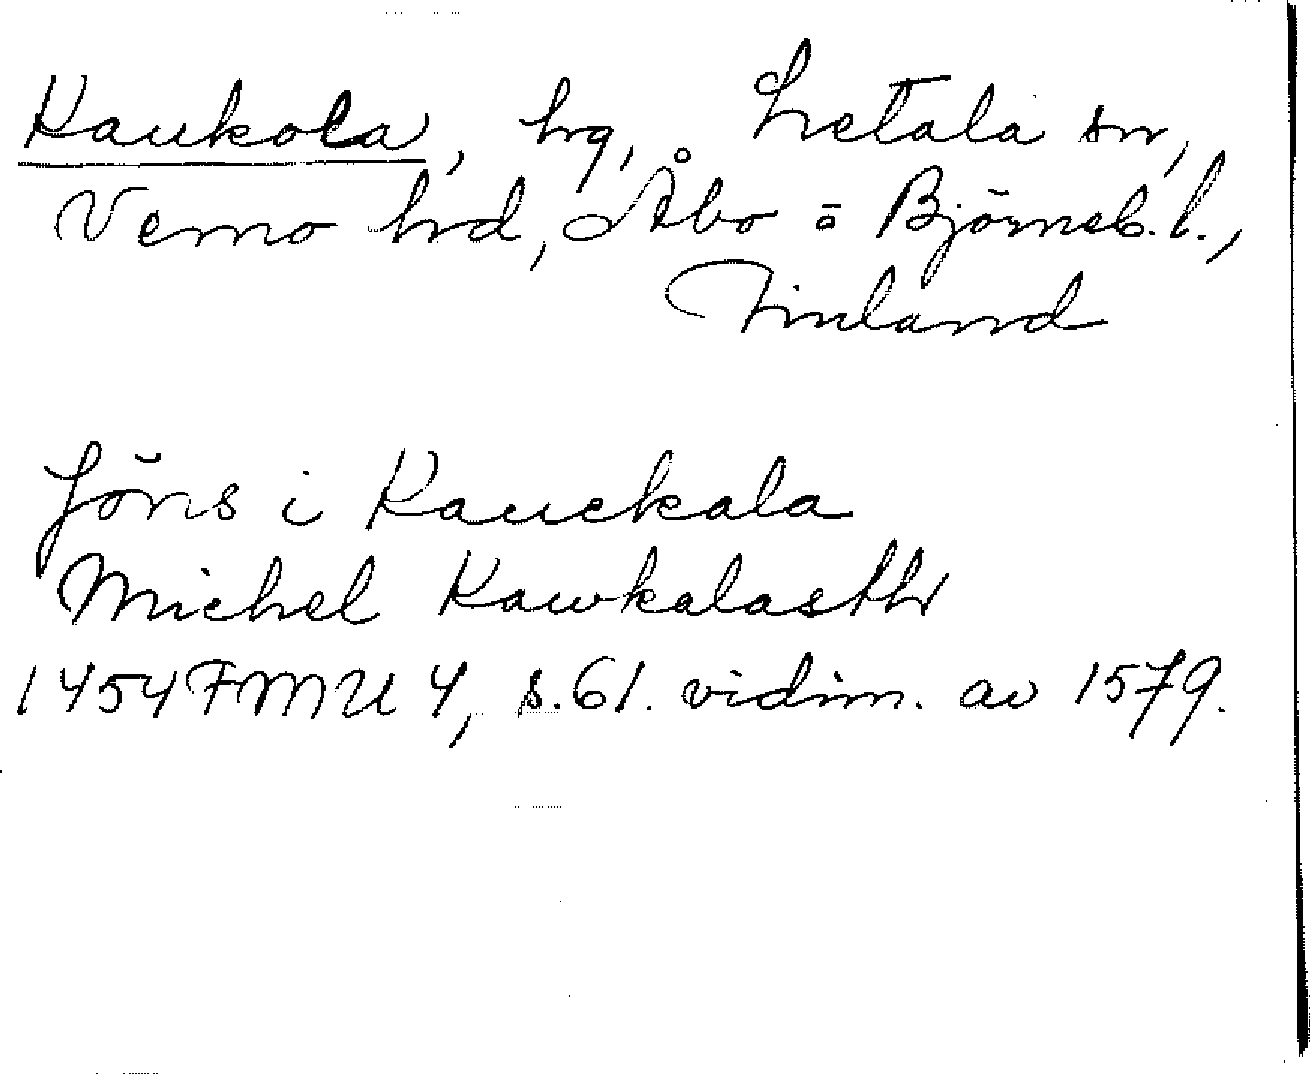 Kaukola, hg, Letala sn,
Vemo hrd, Åbo o Björneb. l.,
Finland
Jöns i Kauckala
Michel Kawkalasthr
1454 FMU 4, s. 61. vidim. av 1579.